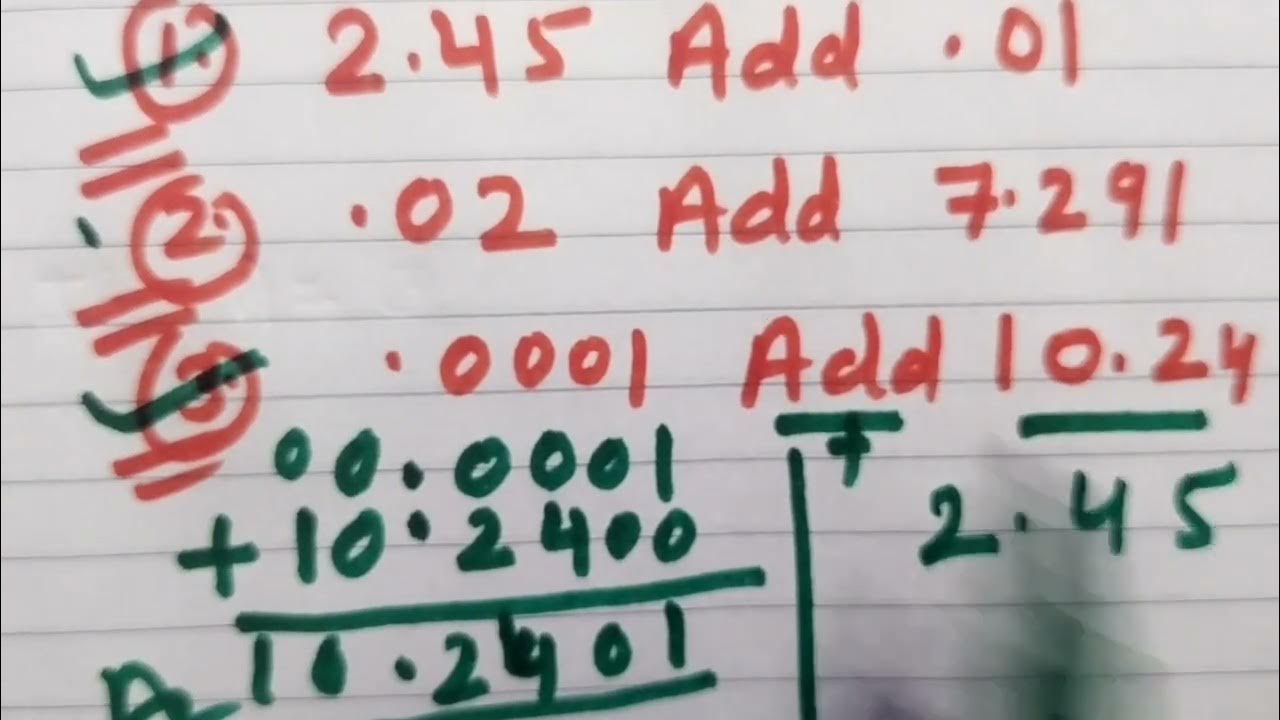 1. 2.45 Add .01
2. .02 Add 7.291
3. .0001 Add 10.24
+
00.0001
+10.2400
10.2401
2.45